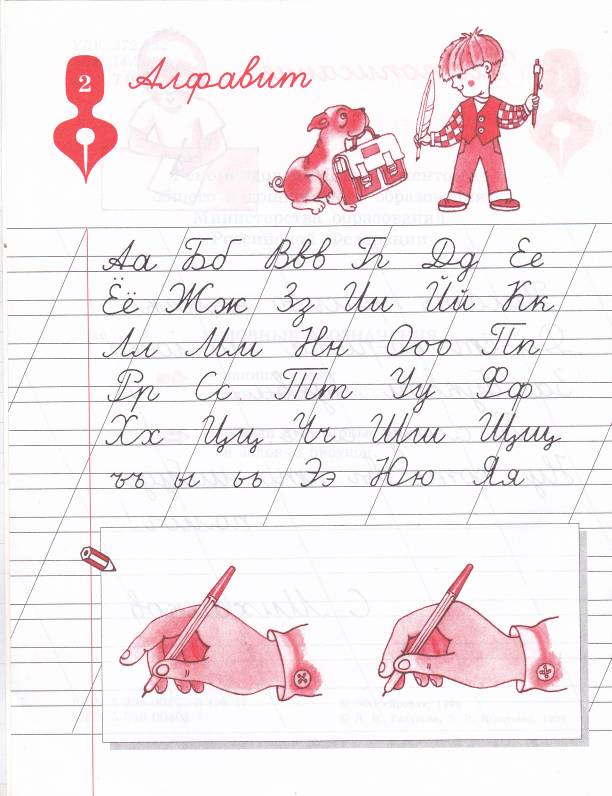 2
Алфавит
Аа Бб Ввв Гг Дд Ее
Ёё Жж Зз Ии Йй Кк
Лл Мм Нн Ооо Пп
Рр Сс Тт Уу Фф
Хх Цц Чч Шш Щщ
ъъ ы ьь Ээ Юю Яя